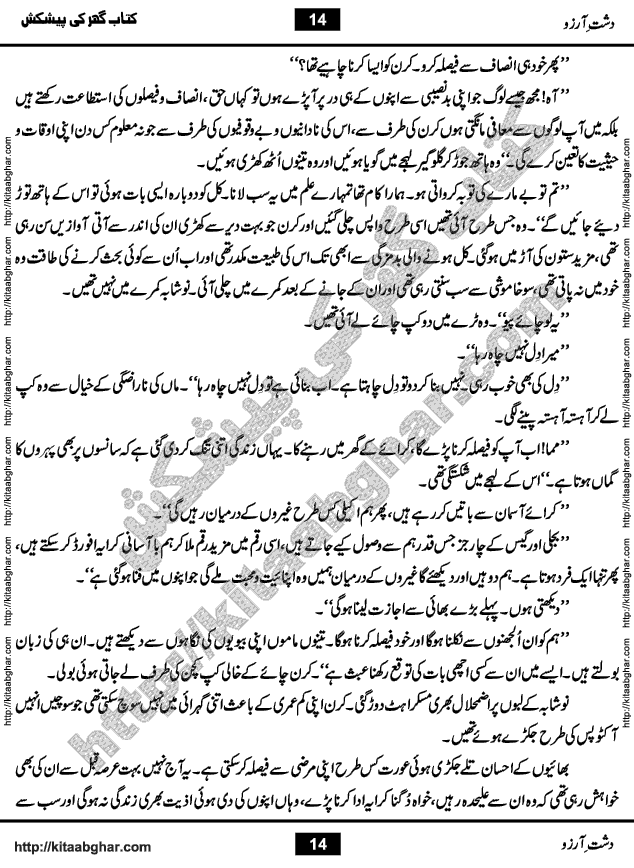 کتاب گھر کی پیشکش 14 دشتِ آرزو
’’پھر خود ہی انصاف سے فیصلہ کرو۔ کرن کو ایسا کرنا چاہیے تھا؟‘‘
’’آہ! مجھ جیسے لوگ جو اپنی بدنصیبی سے اپنوں کے ہی در پر آ پڑے ہوں تو کہاں حق، انصاف و فیصلوں کی استطاعت رکھتے ہیں
بلکہ میں آپ لوگوں سے معافی مانگتی ہوں کرن کی طرف سے، اس کی نادانیوں و بے وقوفیوں کی طرف سے جو نہ معلوم کس دن اپنی اوقات و
حیثیت کا تعین کرے گی۔‘‘ وہ ہاتھ جوڑ کر گلوگیر لہجے میں گویا ہوئیں اور وہ تینوں اُٹھ کھڑی ہوئیں۔
’’تم تو بے مارے کی توبہ کرواتی ہو۔ ہمارا کام تھا تمہارے علم میں یہ سب لانا۔ کل کو دوبارہ ایسی بات ہوئی تو اس کے ہاتھ توڑ
دیئے جائیں گے‘‘۔ وہ جس طرح آئی تھیں اسی طرح واپس چلی گئیں اور کرن جو بہت دیر سے کھڑی ان کی اندر سے آتی آوازیں سن رہی
تھی، مزید ستون کی آڑ میں ہو گئی۔ کل ہونے والی بدمزگی سے ابھی تک اس کی طبیعت مکدر تھی اور اب اُن سے کوئی بحث کرنے کی طاقت وہ
خود میں نہ پاتی تھی، سو خاموشی سے سب سنتی رہی تھی اور ان کے جانے کے بعد کمرے میں چلی آئی۔ نوشابہ کمرے میں نہیں تھیں۔
’’یہ لو چائے پیو‘‘۔ وہ ٹرے میں دو کپ چائے لے آئی تھیں۔
’’میرا دل نہیں چاہ رہا‘‘۔
’’دِل کی بھی خوب رہی۔ نہیں بنا کر دو تو دِل چاہتا ہے۔ اب بنائی ہے تو دِل نہیں چاہ رہا‘‘۔ ماں کی ناراضگی کے خیال سے وہ کپ
لے کر آہستہ آہستہ پینے لگی۔
’’مما! اب آپ کو فیصلہ کرنا پڑے گا، کرائے کے گھر میں رہنے کا۔ یہاں زندگی اتنی تنگ کر دی گئی ہے کہ سانسوں پر بھی پہروں کا
گماں ہوتا ہے۔‘‘ اس کے لہجے میں شکستگی تھی۔
’’کرائے آسمان سے باتیں کر رہے ہیں، پھر ہم اکیلی کس طرح غیروں کے درمیان رہیں گی‘‘۔
’’بجلی اور گیس کے چارجز جس قدر ہم سے وصول کیے جاتے ہیں، اسی رقم میں مزید رقم ملا کر ہم بآسانی کرایہ افورڈ کر سکتے ہیں،
پھر تنہا ایک فرد ہوتا ہے۔ ہم دو ہیں اور دیکھئے گا غیروں کے درمیان ہمیں وہ اپنائیت و محبت ملے گی جو اپنوں میں فنا ہو گئی ہے‘‘۔
’’دیکھتی ہوں۔ پہلے بڑے بھائی سے اجازت لینا ہوگی‘‘۔
’’ہم کو ان اُلجھنوں سے نکلنا ہوگا اور خود فیصلہ کرنا ہوگا۔ تینوں ماموں اپنی بیویوں کی نگاہوں سے دیکھتے ہیں۔ ان ہی کی زبان
بولتے ہیں۔ ایسے میں ان سے کسی اچھی بات کی توقع رکھنا عبث ہے‘‘۔ کرن چائے کے خالی کپ کچن کی طرف لے جاتی ہوئی بولی۔
نوشابہ کے لبوں پر اضمحلال بھری مسکراہٹ دوڑ گئی۔ کرن اپنی کم عمری کے باعث اتنی گہرائی میں نہیں سوچ سکتی تھی جو سوچیں انہیں
آکٹوپس کی طرح جکڑے ہوئے تھیں۔
بھائیوں کے احسان تلے جکڑی ہوئی عورت کس طرح اپنی مرضی سے فیصلہ کر سکتی ہے۔ یہ آج نہیں بہت عرصہ قبل سے ان کی بھی
خواہش رہی تھی کہ وہ ان سے علیحدہ رہیں، خواہ دُگنا کرایہ ادا کرنا پڑے، وہاں اپنوں کی دی ہوئی اذیت بھری زندگی نہ ہوگی اور سب سے
http://kitaabghar.com 14 دشتِ آرزو
http://kitaabghar.com http://kitaabghar.com http://kitaabghar.com http://kitaabghar.com http://kitaabghar.com http://kitaabghar.com
http://kitaabghar.com http://kitaabghar.com http://kitaabghar.com http://kitaabghar.com http://kitaabghar.com http://kitaabghar.com
کتاب گھر کی پیشکش
http://kitaabghar.com